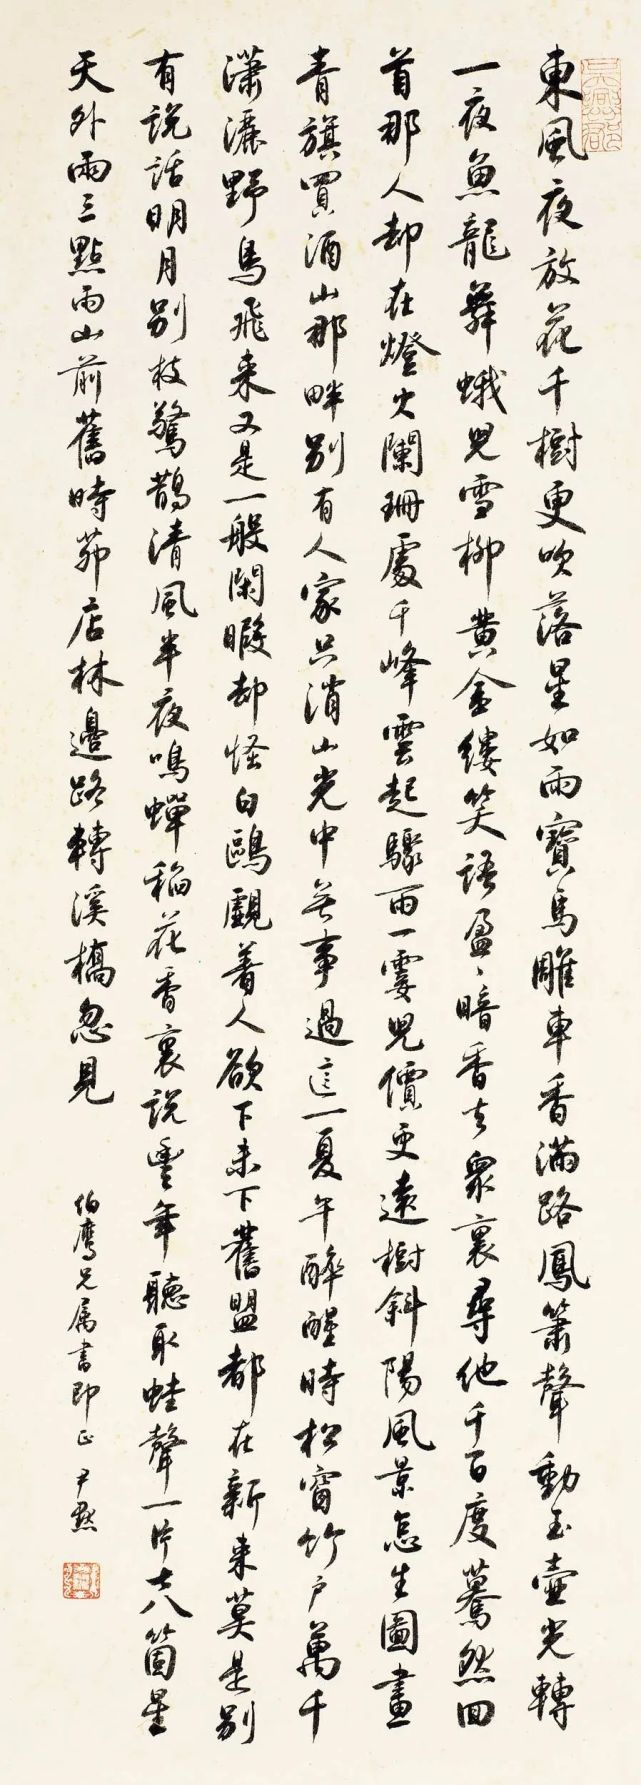 東風夜放花千樹更吹落星如雨寶馬雕車香滿路鳳簫聲動玉壺光轉
一夜魚龍舞蛾兒雪柳黃金縷笑語盈、暗香去眾裏尋他千百度驀然回
首那人却在燈火闌珊處千峰雲起驟雨一霎兒價更遠樹斜陽風景怎生圖畫
青旗買酒山那畔別有人家只消山光中無事過這一夏午醉醒時松窗竹户萬千
瀟灑野鳥飛來又是一般閑暇却怪白鷗覷着人欲下未下舊盟都在新來莫是別
有説話明月別枝驚鵲清風半夜鳴蟬稻花香裏説豐年聽取蛙聲一片七八箇星
天外兩三點雨山前舊時茆店林邊路轉溪橋忽見
伯鷹兄属書即正 尹默